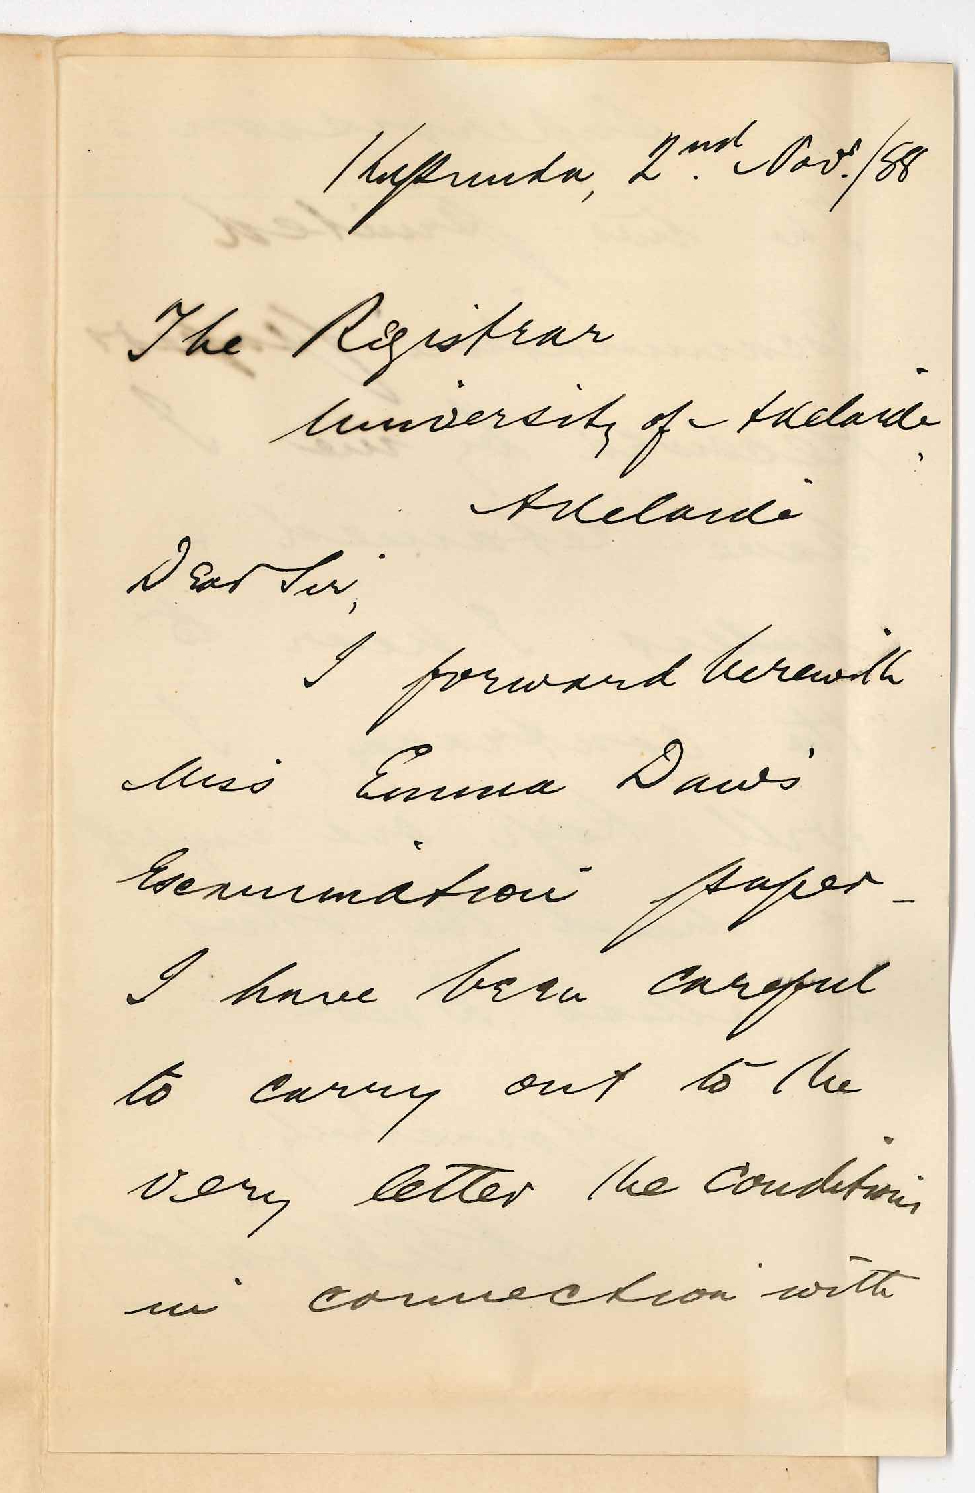 Kapunda, 2nd. Nov./88
The Registrar
University of Adelaide
Adelaide
Dear Sir,
I forward herewith
Miss Emma Davis
Examination paper _
I have been careful
to carry out to the
very letter the conditions
in connection with